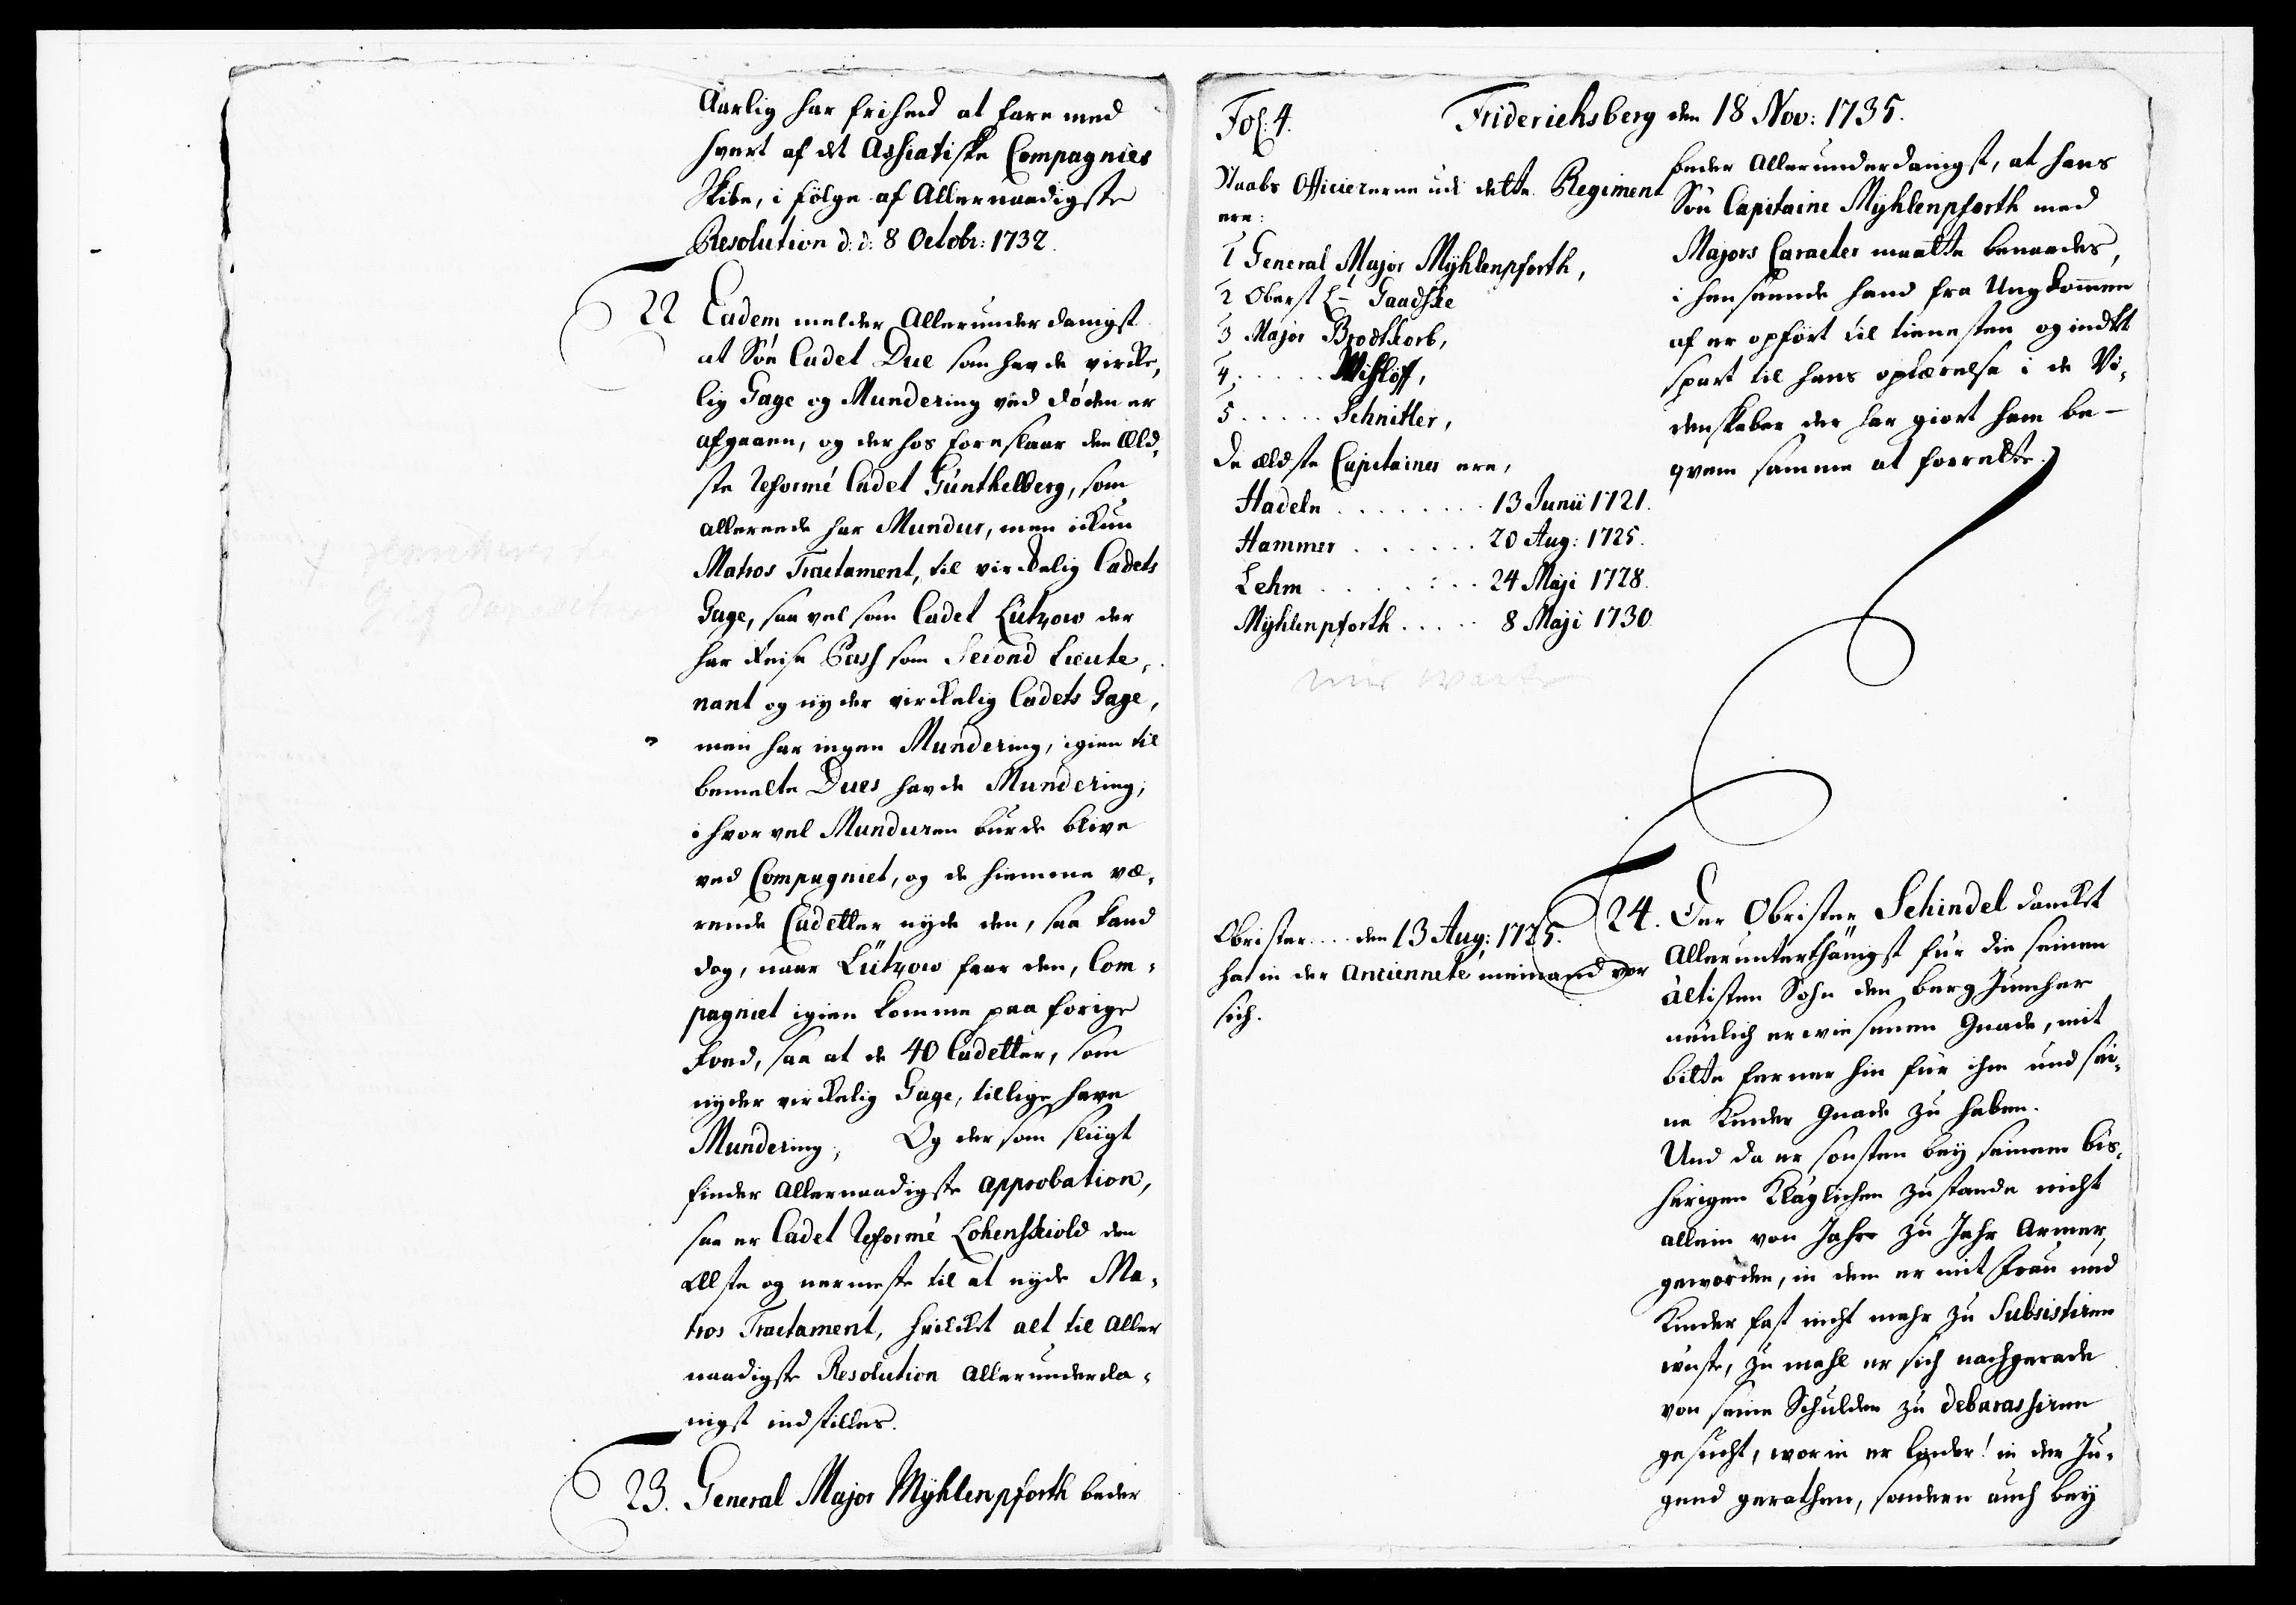 Aarlig har frihed at fare med
hvert af det Assiatiske Compagnies
Skibe, i fölge af Allernaadigste
Resolution d: d: 8 Octobr: 1732.
22 Eadem melder Allerunderdanigst
at Söe Cadet Due som havde virke,
lig Gage og Mundering ved döden er
afgaaen, og der hos foreslaar den Æld,
ste Reformé Cadet Günthelberg, som
allereede har Mundur, men ickun
Matros Tractament, til virkelig Cadets
Gage, saa vel som Cadet Lützow der
har Reise Pass som Second Lieute,
nant og nyder virkelig Cadets Gage,
men har ingen Mundering, igien til
bemelte Dues havde Mundering;
ihvorvel Munduren burde blive
ved Compagniet, og de hiemme væ,
rende Cadetter nyde den, saa kand
dog, naar Lützow faar den, Com,
pagniet igien komme paa forige
Foed, saa at de 40 Cadetter, som
nyder virkelig Gage, tillige have
Mundering; Og der som sligt
finder Allernaadigste approbation,
saa er Cadet Reformé Lohenskiold den
ælste og nermeste til at nyde Ma,
tros Tractament, hvilcket alt til Aller
naadigste Resolution Allerunderda,
nigst indstilles.
23. General Major Mÿhlenpforth beder
Fol: 4.
Friderichsberg den 18 Nov: 1735.
Staabs Officiererne udi dette Regiment
ere:
1 General Major Mÿhlenpforth,
2 Oberst Lt Gaadske
3 Major Brodtkorb,
4, . . . . . Wislöff,
5 . . . . . Schnitler,
De ældste Capitainer ere,
Hadeln . . . . . . . . 13 Junii 1721.
Hammer . . . . . . 20 Aug: 1725.
Lehm . . . . . . . 24 Maji 1728.
Mÿhlenpforth . . . . . 8 Maji 1730.
beder Allerunderdanigst, at hans
Sön Capitaine Mÿhlenpforth med
Majors Caracter maatte benaades,
i henseende hand fra Ungdommen
af er opfört til tienesten og indtet
spart til hans oplærelse i de Vi,
denskaber der har giort ham be-
qvem samme at forrette.
Obrister . . . . den 13 Aug: 1725.
hat in der Ancienneté niemand vor
sich.
24. Der Obrister Schindel dancket
Allerunterthänigst für die seinem
ältisten Sohn den Berg Juncker
neulich erwiesenen Gnade, mit
bitte ferner hin für ihm und sei,
ne Kinder Gnade zu haben.
Und da er sonsten bey seinem bis,
herigen Kläglichen zustande nicht
allein von Jahr zu Jahr Armer
geworden, in dem er mit Frau und
Kinder fast nicht mehr zu Subsistiren
wuste, zu mahl er sich nachgerade
von seine Schulden zu debarassiren
gesucht, worin er leyder! in der Ju,
gend gerathen, sondern auch bey